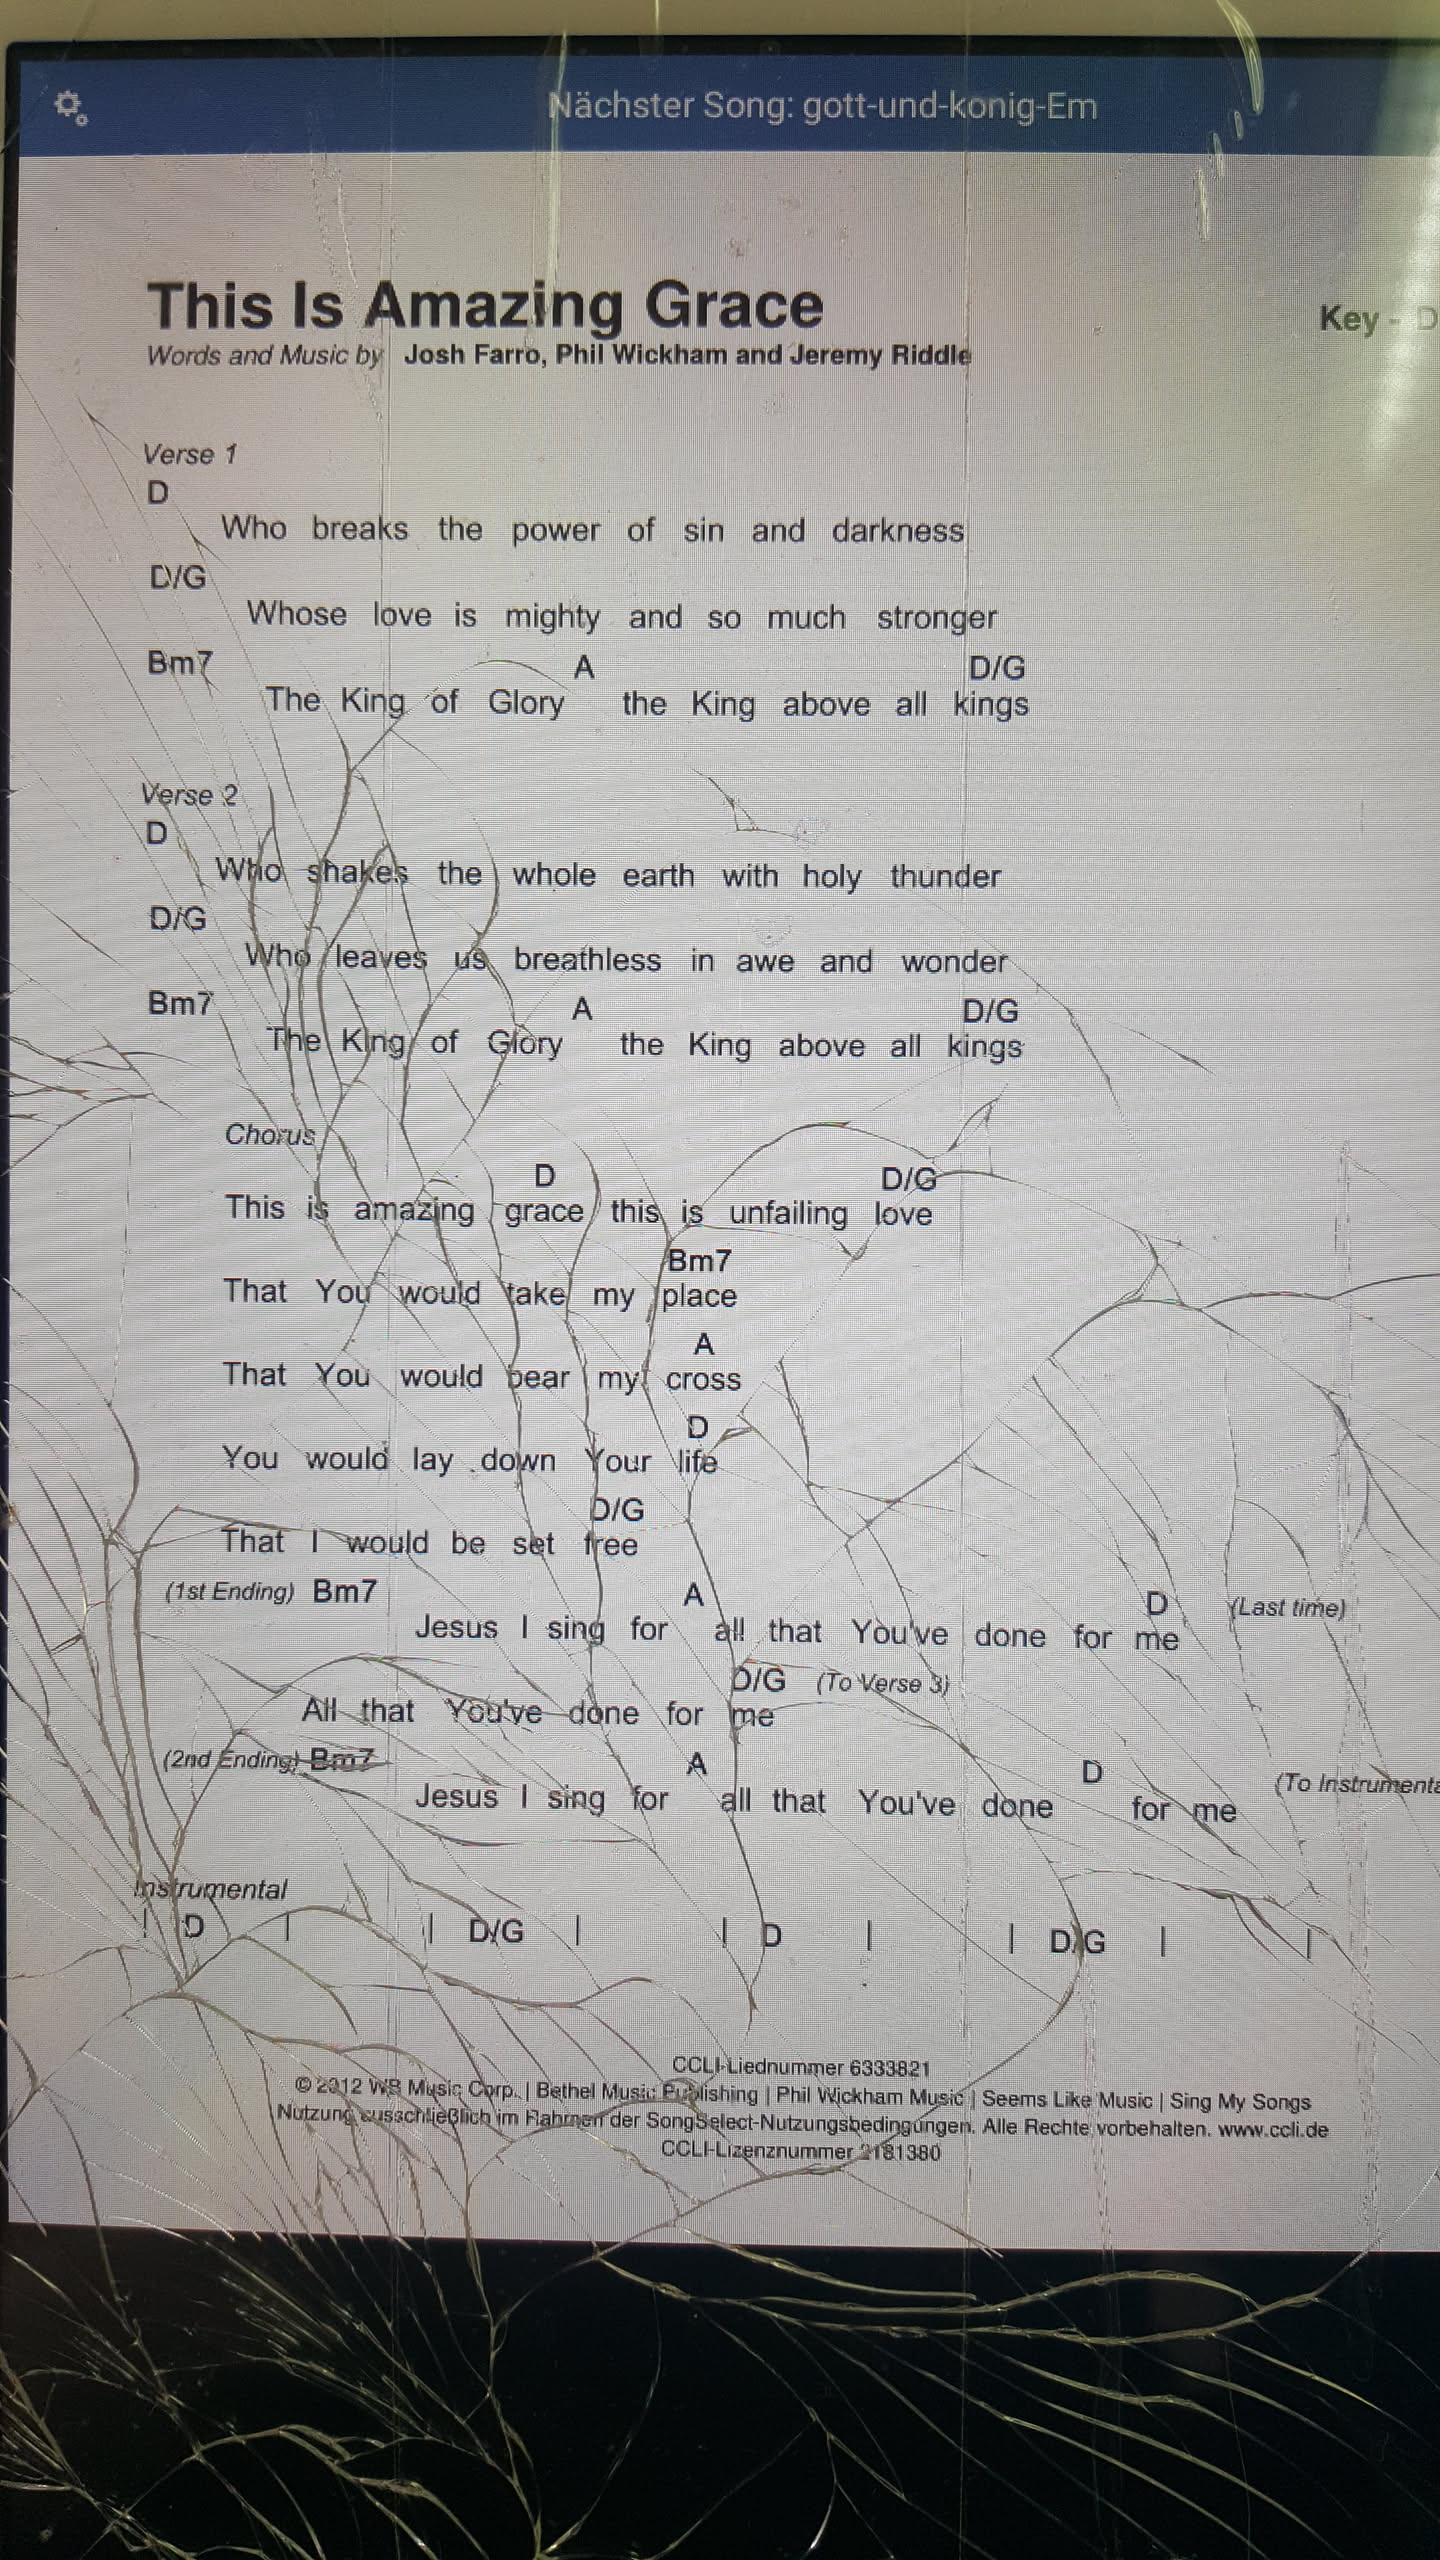 Nächster Song: gott-und-konig-Em
This Is Amazing Grace
Key - D
Words and Music by Josh Farro, Phil Wickham and Jeremy Riddle
Verse 1
D
Who breaks the power of sin and darkness
D/G
Whose love is mighty and so much stronger
Bm7 A D/G
The King of Glory the King above all kings
Verse 2
D
Who shakes the whole earth with holy thunder
D/G
Who leaves us breathless in awe and wonder
Bm7 A D/G
The King of Glory the King above all kings
Chorus
D D/G
This is amazing grace this is unfailing love
Bm7
That You would take my place
A
That You would bear my cross
D
You would lay down Your life
D/G
That I would be set free
(1st Ending) Bm7 A D (Last time)
Jesus I sing for all that You've done for me
D/G (To Verse 3)
All that You've done for me
(2nd Ending) Bm7 A D (To Instrumenta
Jesus I sing for all that You've done for me
Instrumental
| D | | D/G | | D | | D/G | |
CCLI-Liednummer 6333821
© 2012 WB Music Corp. | Bethel Music Publishing | Phil Wickham Music | Seems Like Music | Sing My Songs
Nutzung ausschließlich im Rahmen der SongSelect-Nutzungsbedingungen. Alle Rechte vorbehalten. www.ccli.de
CCLI-Lizenznummer 2181380